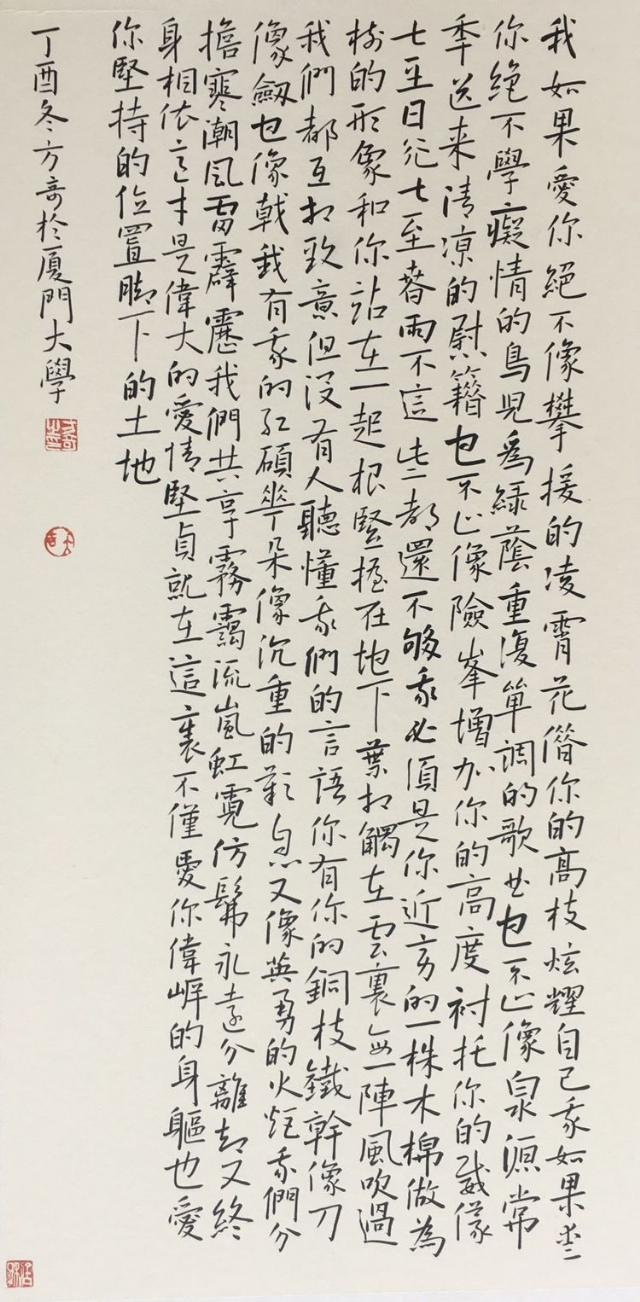 我如果愛你絕不像攀援的凌霄花借你的高枝炫耀自己我如果愛
你絕不學癡情的鳥兒為綠蔭重復單調的歌曲也不止像泉源常
年送來清涼的慰籍也不止像險峰增加你的高度襯托你的威儀
甚至日光甚至春雨不這些都還不够我必須是你近旁的一株木棉做為
樹的形象和你站在一起根緊握在地下葉相觸在雲裏每一陣風吹過
我們都互相致意但沒有人聽懂我們的言語你有你的銅枝鐵幹像刀
像劔也像戟我有我的紅碩華朵像沉重的嘆息又像英勇的火炬我們分
擔寒潮風雷霹靂我們共享霧靄流嵐虹霓仿髴永遠分離却又終
身相依這才是偉大的愛情堅貞就在這裏不僅愛你偉岸的身軀也愛
你堅持的位置脚下的土地
丁酉冬方奇於厦門大學